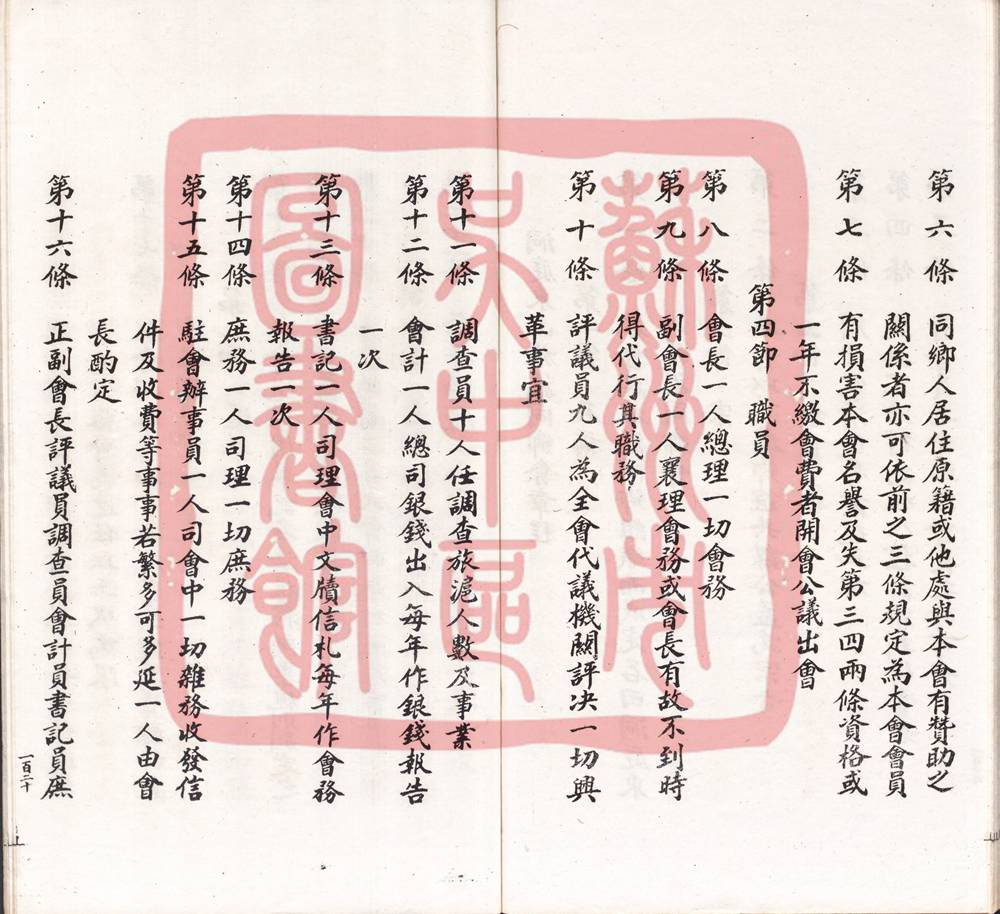 第六條　同鄉人居住原籍或他處與本會有贊助之
關係者亦可依前之三條規定為本會會員
第七條　有損害本會名譽及失第三四兩條資格或
一年不繳會費者開會公議出會
第四節　職員
第八條　會長一人總理一切會務
第九條　副會長一人襄理會務或會長有故不到時
得代行其職務
第十條　評議員九人為全會代議機關評決一切興
革事宜
第十一條　調查員十人任調查旅滬人數及事業
第十二條　會計一人總司銀錢出入每年作銀錢報告
一次
第十三條　書記一人司理會中文牘信札每年作會務
報告一次
第十四條　庶務一人司理一切庶務
第十五條　駐會辦事員一人司會中一切雜務收發信
件及收費等事事若繁多可多延一人由會
長酌定
第十六條　正副會長評議員調查員會計員書記員庶
一百二十
蘇州市
吳中區
圖書館